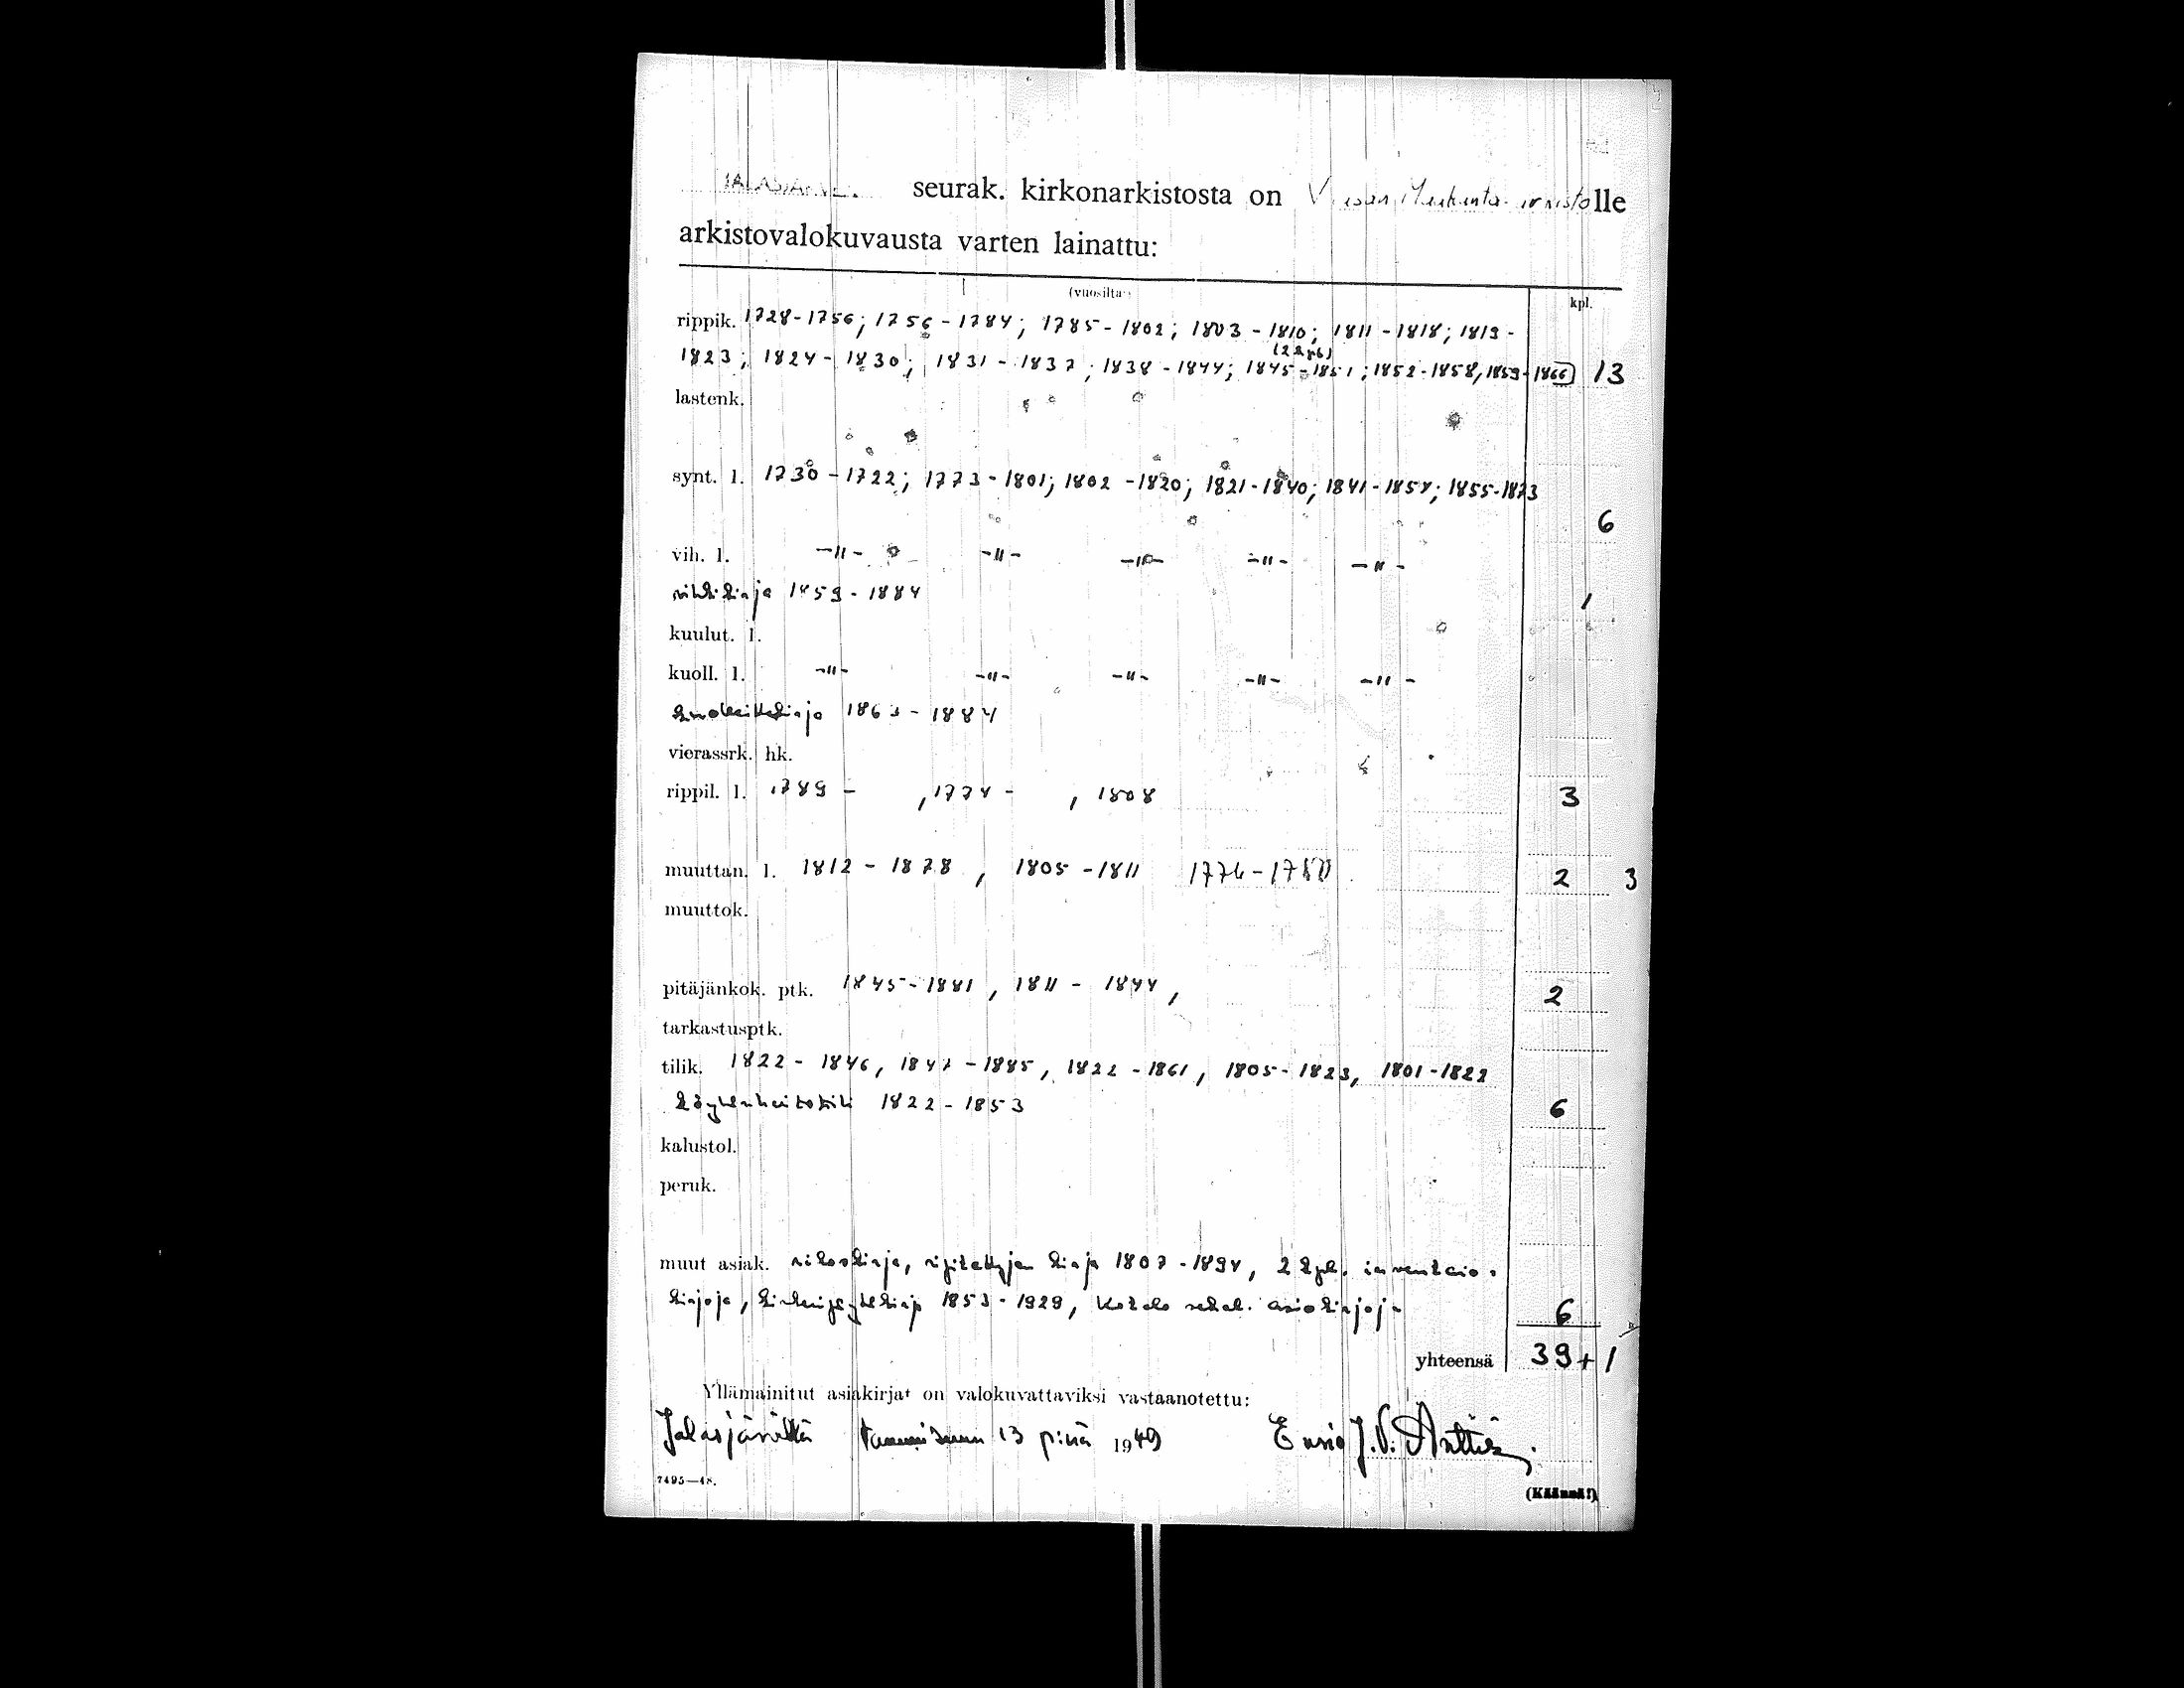 JALASJÄRVEN seurak. kirkonarkistosta on Vaasan Maakunta-arkistolle
arkistovalokuvausta varten lainattu:
(vuosilta:) kpl.
rippik. 1728-1756; 1756-1784; 1785-1802; 1803-1810; 1811-1818; 1819-
(2 kpl)
1823; 1824-1830; 1831-1837; 1838-1844; 1845-1851; 1852-1858, 1859-1866 13
lastenk.
synt. l. 1730-1722; 1773-1801; 1802-1820; 1821-1840; 1841-1854; 1855-1873
6
vih. l. -"- -"- -"- -"- -"-
vihkikirja 1859-1884 1
kuulut. l.
kuoll. l. -"- -"- -"- -"- -"-
1863-1884
vierassrk. hk.
rippil. l. 1789 - , 1774 - , 1808 3
muuttan. l. 1812-1878, 1805-1811 1776-1780 2 3
muuttok.
pitäjänkok. ptk. 1845-1881, 1811-1844, 2
tarkastusptk.
tilik. 1822-1846, 1847-1885, 1822-1861, 1805-1823, 1801-1822
1822-1853 6
kalustol.
peruk.
muut asiak. rikoskirja, kirja 1807-1894, 2 kpl. inventaio-
kirjoja, 1853-1929, Kotelo sekal. asiakirjoja 6
yhteensä 39+1
Yllämainitut asiakirjat on valokuvattaviksi vastaanotettu:
Jalasjärvellä tammikuun 13 p:nä 1949 Ensio J. V. Anttila.
7495—48.
(Käännä!)